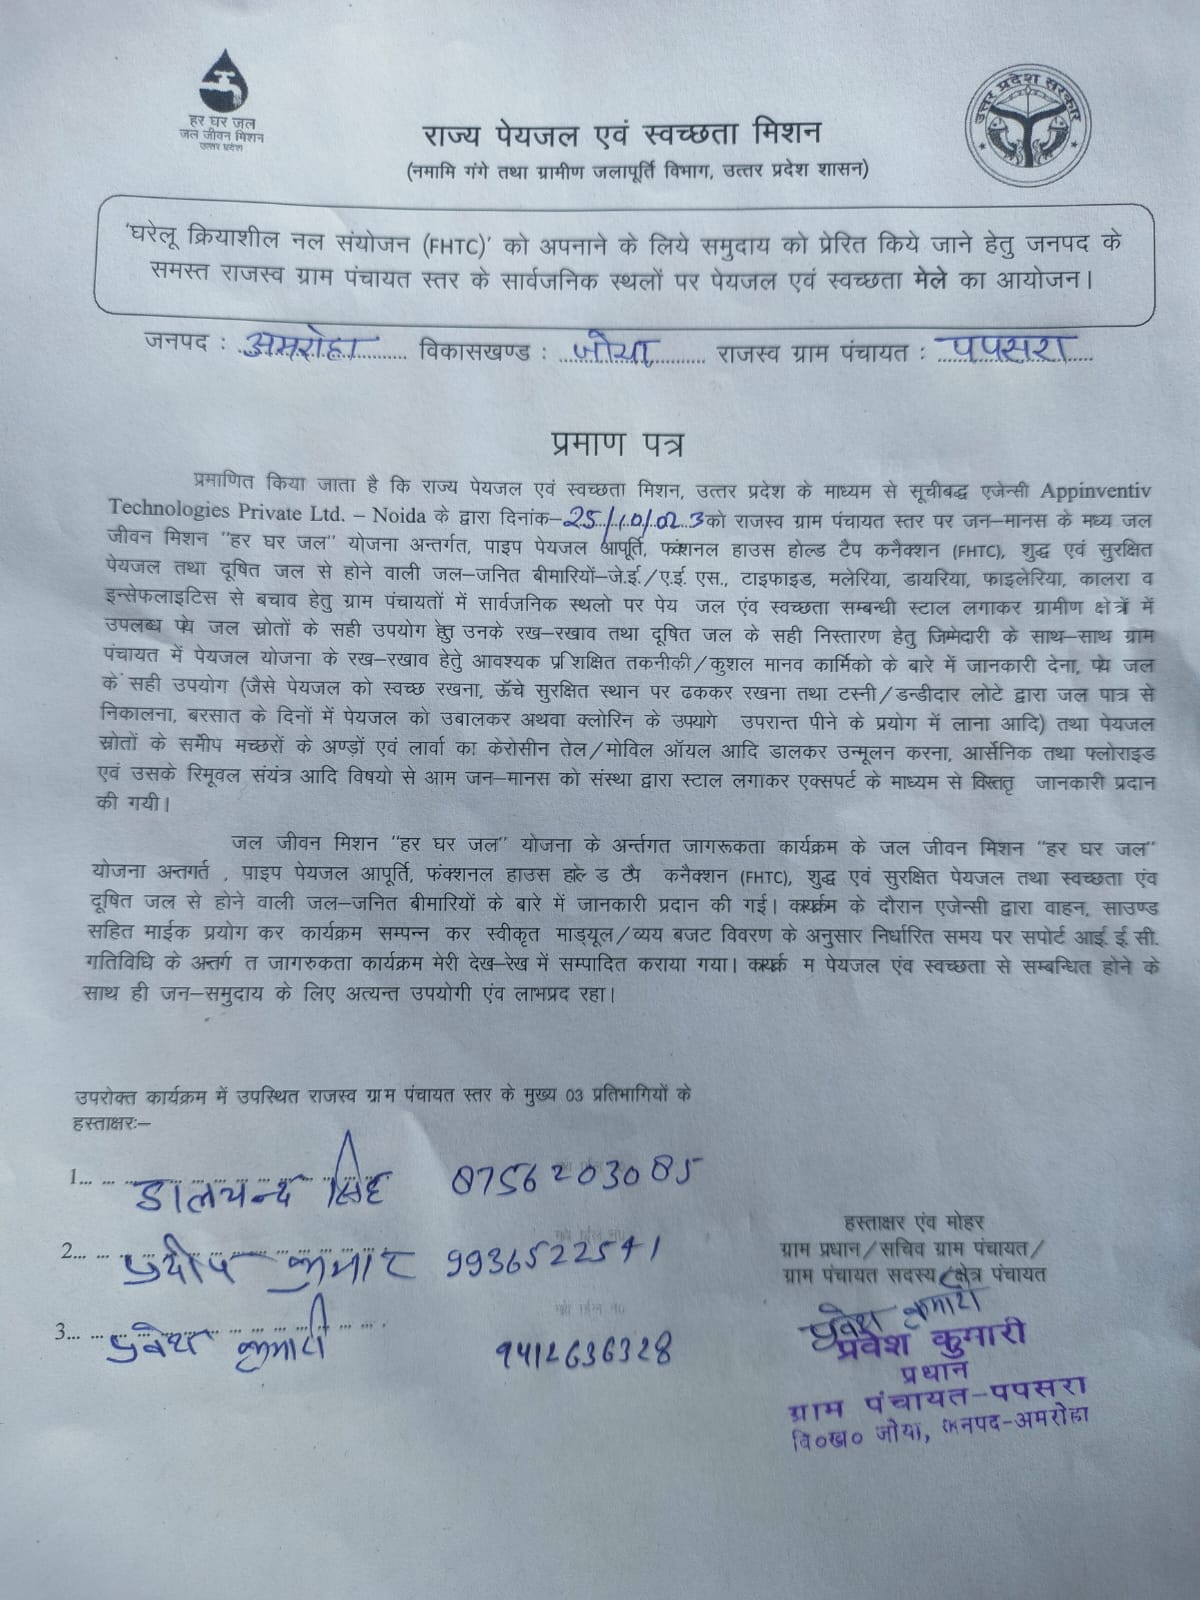 हर घर जल
जल जीवन मिशन
उत्तर प्रदेश
उत्तर प्रदेश सरकार
राज्य पेयजल एवं स्वच्छता मिशन
(नमामि गंगे तथा ग्रामीण जलापूर्ति विभाग, उत्तर प्रदेश शासन)
'घरेलू क्रियाशील नल संयोजन (FHTC)' को अपनाने के लिये समुदाय को प्रेरित किये जाने हेतु जनपद के
समस्त राजस्व ग्राम पंचायत स्तर के सार्वजनिक स्थलों पर पेयजल एवं स्वच्छता मेले का आयोजन।
जनपद : अमरोहा विकासखण्ड : जोया राजस्व ग्राम पंचायत : पपसरा
प्रमाण पत्र
प्रमाणित किया जाता है कि राज्य पेयजल एवं स्वच्छता मिशन, उत्तर प्रदेश के माध्यम से सूचीबद्ध एजेन्सी Appinventiv
Technologies Private Ltd. – Noida के द्वारा दिनांक–25/10/023 को राजस्व ग्राम पंचायत स्तर पर जन–मानस के मध्य जल
जीवन मिशन "हर घर जल" योजना अन्तर्गत, पाइप पेयजल आपूर्ति, फंक्शनल हाउस होल्ड टैप कनैक्शन (FHTC), शुद्ध एवं सुरक्षित
पेयजल तथा दूषित जल से होने वाली जल–जनित बीमारियों–जे.ई./ए.ई. एस., टाइफाइड, मलेरिया, डायरिया, फाइलेरिया, कालरा व
इन्सेफलाइटिस से बचाव हेतु ग्राम पंचायतों में सार्वजनिक स्थलो पर पेय जल एंव स्वच्छता सम्बन्धी स्टाल लगाकर ग्रामीण क्षेत्रों में
उपलब्ध पेय जल स्रोतों के सही उपयोग हेतु उनके रख–रखाव तथा दूषित जल के सही निस्तारण हेतु जिम्मेदारी के साथ–साथ ग्राम
पंचायत में पेयजल योजना के रख–रखाव हेतुे आवश्यक प्रशिक्षित तकनीकी/कुशल मानव कार्मिको के बारे में जानकारी देना, पेय जल
के सही उपयोग (जैसे पेयजल को स्वच्छ रखना, ऊँचे सुरक्षित स्थान पर ढककर रखना तथा टस्नी/डन्डीदार लोटे द्वारा जल पात्र से
निकालना, बरसात के दिनों में पेयजल को उबालकर अथवा क्लोरिन के उपयागे उपरान्त पीने के प्रयोग में लाना आदि) तथा पेयजल
स्रोतों के समीप मच्छरों के अण्डों एवं लार्वा का केरोसीन तेल/मोविल ऑयल आदि डालकर उन्मूलन करना, आर्सेनिक तथा फ्लोराइड
एवं उसके रिमूवल संयंत्र आदि विषयो से आम जन–मानस को संस्था द्वारा स्टाल लगाकर एक्सपर्ट के माध्यम से विस्ततृ जानकारी प्रदान
की गयी।
जल जीवन मिशन "हर घर जल" योजना के अर्न्तगत जागरूकता कार्यक्रम के जल जीवन मिशन "हर घर जल"
योजना अन्तगर्त , पाइप पेयजल आपूर्ति, फंक्शनल हाउस होल्ड टैप कनैक्शन (FHTC), शुद्ध एवं सुरक्षित पेयजल तथा स्वच्छता एंव
दूषित जल से होने वाली जल–जनित बीमारियों के बारे में जानकारी प्रदान की गई। कार्यक्रम के दौरान एजेन्सी द्वारा वाहन, साउण्ड
सहित माईक प्रयोग कर कार्यक्रम सम्पन्न कर स्वीकृत माड्यूल/व्यय बजट विवरण के अनुसार निर्धारित समय पर सपोर्ट आई. ई सी.
गतिविधि के अन्तर्ग त जागरुकता कार्यक्रम मेरी देख–रेख में सम्पादित कराया गया। कार्यक्र म पेयजल एंव स्वच्छता से सम्बन्धित होने के
साथ ही जन–समुदाय के लिए अत्यन्त उपयोगी एंव लाभप्रद रहा।
उपरोक्त कार्यक्रम में उपस्थित राजस्व ग्राम पंचायत स्तर के मुख्य 03 प्रतिभागियों के
हस्ताक्षरः–
1... डालचन्द सिंह 8756203085
2... प्रदीप कुमार 9936522541
3... प्रवेश कुमारी 9412636328
हस्ताक्षर एंव मोहर
ग्राम प्रधान/सचिव ग्राम पंचायत/
ग्राम पंचायत सदस्य/क्षेत्र पंचायत
प्रवेश कुमारी
प्रवेश कुमारी
प्रधान
ग्राम पंचायत-पपसरा
वि०ख० जोया, जनपद-अमरोहा